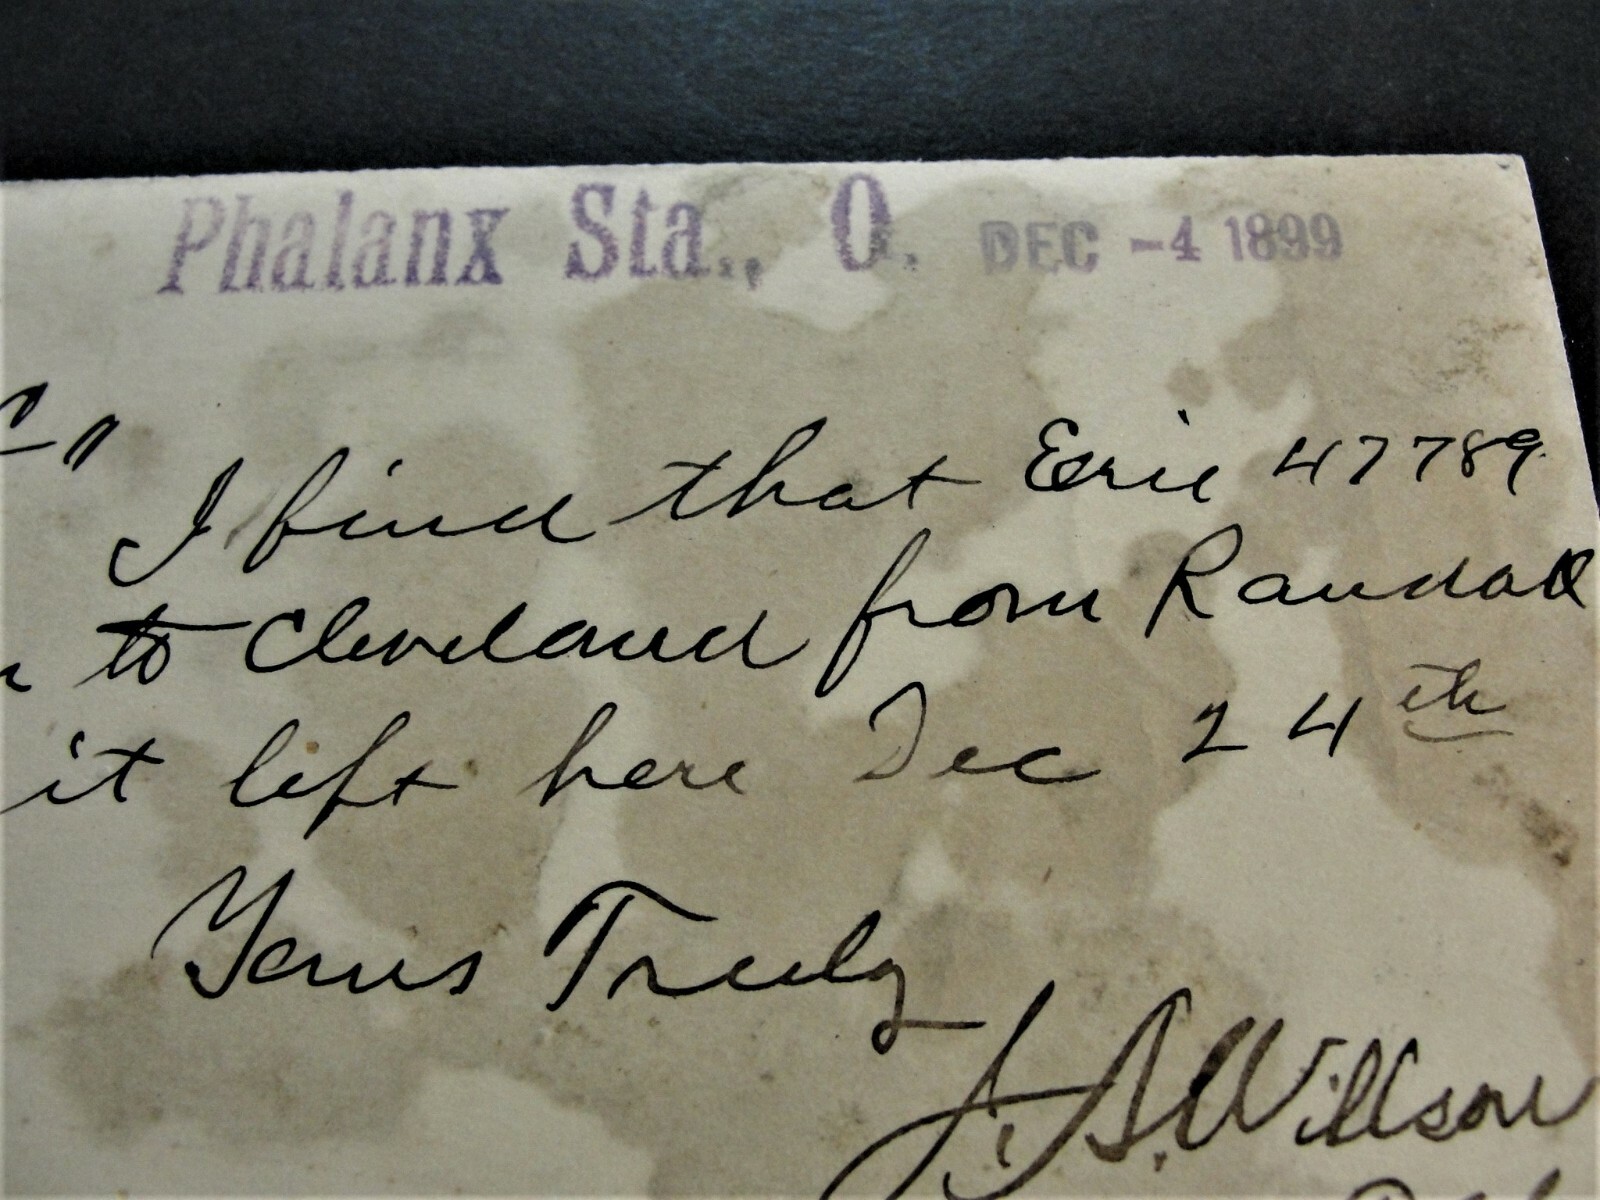 Phalanx Sta., O. DEC -4 1899
"
I find that Erie 47789
to Cleveland from Randall
it left here Dec 24th
Yours Truly
J. A. Willson